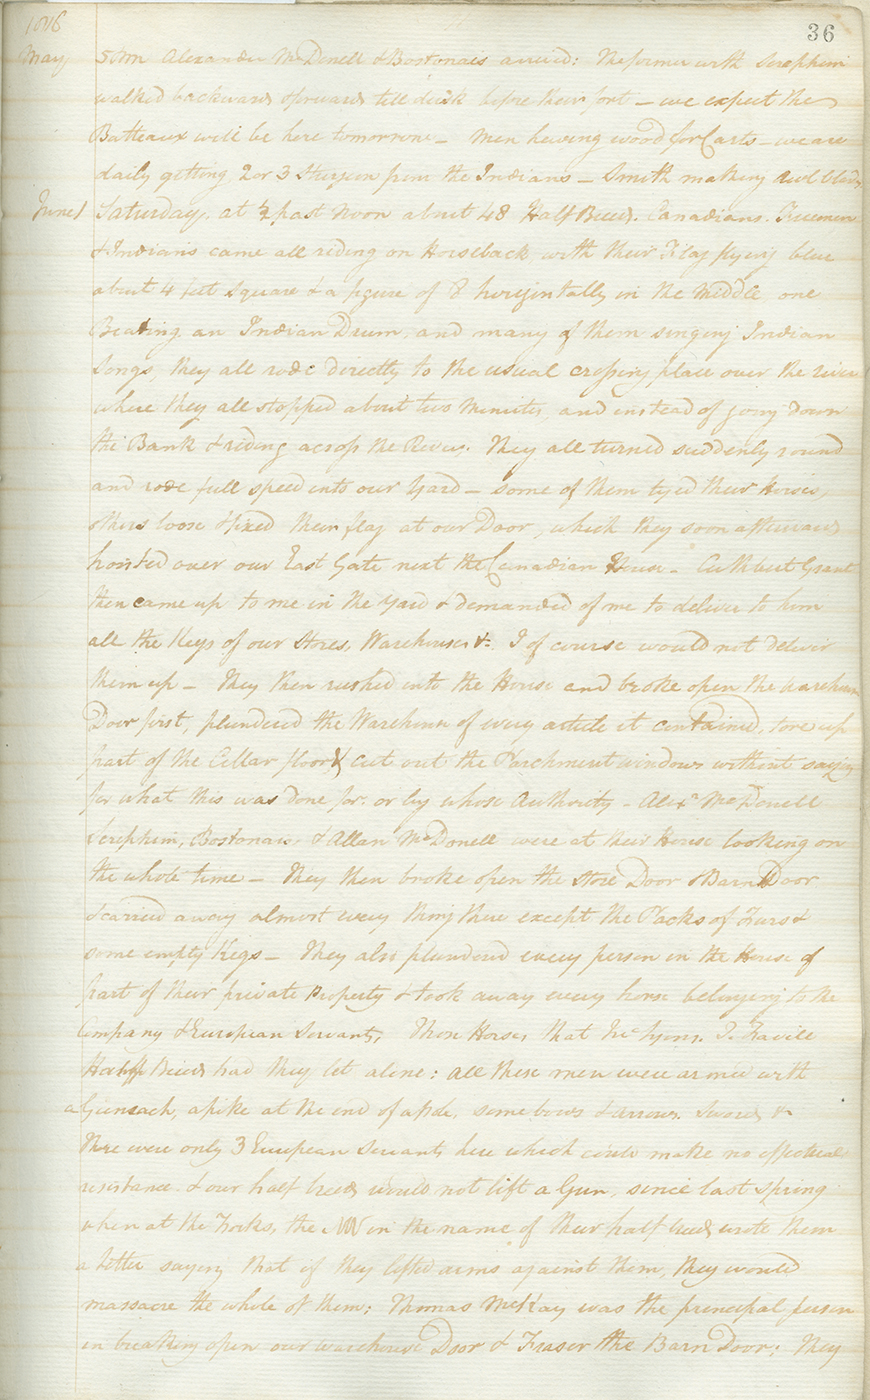 1816
36
May 5 pm Alexander McDonell & Bostonais arrived: The former with Seraphim
walked backwards & forwards till dusk before their fort – we expect the
Batteaux will be here tomorrow – Men hewing wood for Carts – we are
daily getting 2 or 3 Sturgeon from the Indians – Smith making
June 1 Saturday. at ½ past Noon about 48 Half Breeds. Canadians. Freemen
& Indians came all riding on Horseback, with their Flag flying blue
about 4 feet square & a figure of 8 horizontally in the Middle, one
Beating an Indian Drum, and many of them singing Indian
Songs, they all rode directly to the usual crossing place over the river
where they all stopped about two Minutes, and instead of going down
the Bank & riding across the River. They all turned suddenly round
and rode full speed into our Yard – some of them tyed their Horses,
others loose & fixed their flag at our Door, which they soon afterwards
hoisted over our East Gate next the Canadian House – Cuthbert Grant
then came up to me in the Yard & demanded of me to deliver to him
all the Keys of our Stores, Warehouses &c. I of course would not deliver
them up – They then rushed into the House and broke open the warehouse
Door first, plundered the Warehouse of every article it contained, tore up
part of the Cellar floor & cut out the Parchment windows without saying
for what this was done for or by whose Authority – Alexr McDonell
Seraphim, Bostonais, & Allan McDonell were at their House looking on
the whole time – They then broke open the Store Door & Barn Door
& carried away almost every thing there except the Packs of Furs &
some empty Kegs – They also plundered every person in the House of
part of their private Property & took away every horse belonging to the
Company & European Servants, Those Horses that J. Favill
Half Breeds had they let alone: all these men were armed with
a Gun each, a pike at the end of a pole, some bows & arrows. Swords &c
There were only 3 European Servants here which could make no effectual
resistance & our half breeds would not lift a Gun, since last Spring
when at the Forks, the NW in the name of their half breeds wrote them
a letter saying that if they lifted arms against them, they would
massacre the whole of them; Thomas McKay was the principal person
in breaking open our warehouse Door & Fraser the Barn Door; They